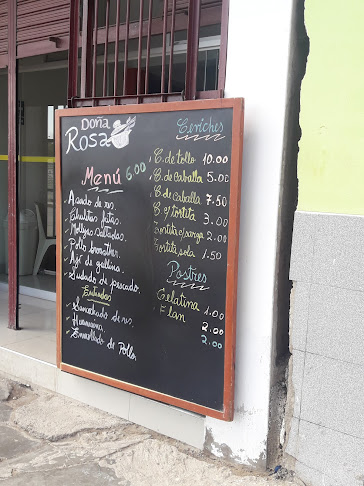 Doña
Rosa
Menú 6.00
Asado de res.
Chuletitas fritas.
Mollejas Saltadas.
Pollo broaster.
Ají de gallina.
Sudado de pescado.
Entradas
Sancochado de res.
Huancaína.
Enrollado de Pollo.
Ceviches
C. de tollo 10.00
C. de caballa 5.00
C. de caballa 7.50
C. c/ tortita 3.00
Tortita c/ 2.00
Tortita sola 1.50
Postres
Gelatina 1.00
Flan 2.00
2.00